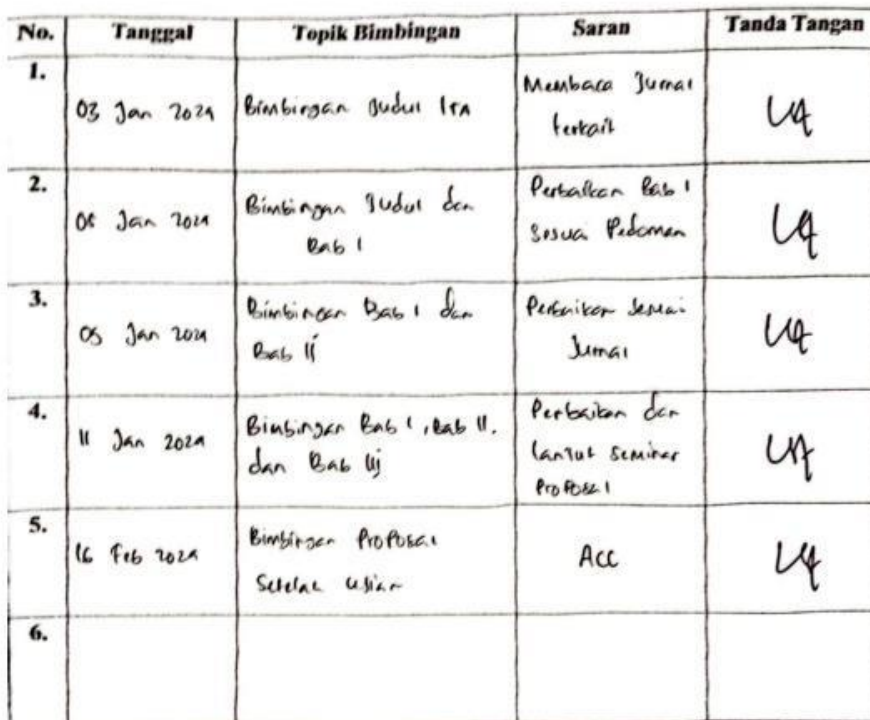 No. Tanggal Topik Bimbingan Saran Tanda Tangan
1.
03 Jan 2024 Bimbingan Judul Membaca Jurnal
terkait
2.
Jan 2024 Bimbingan Judul dan Perbaikan Bab I
Bab I Sesuai Pedoman
3.
Jan 2024 Bimbingan Bab I dan Perbaikan Sesuai
Bab II Jurnal
4.
11 Jan 2024 Bimbingan Bab I, Bab II, Perbaikan dan
dan Bab III lanjut seminar
Proposal
5.
16 Feb 2024 Bimbingan Proposal ACC
Setelah Ujian
6.